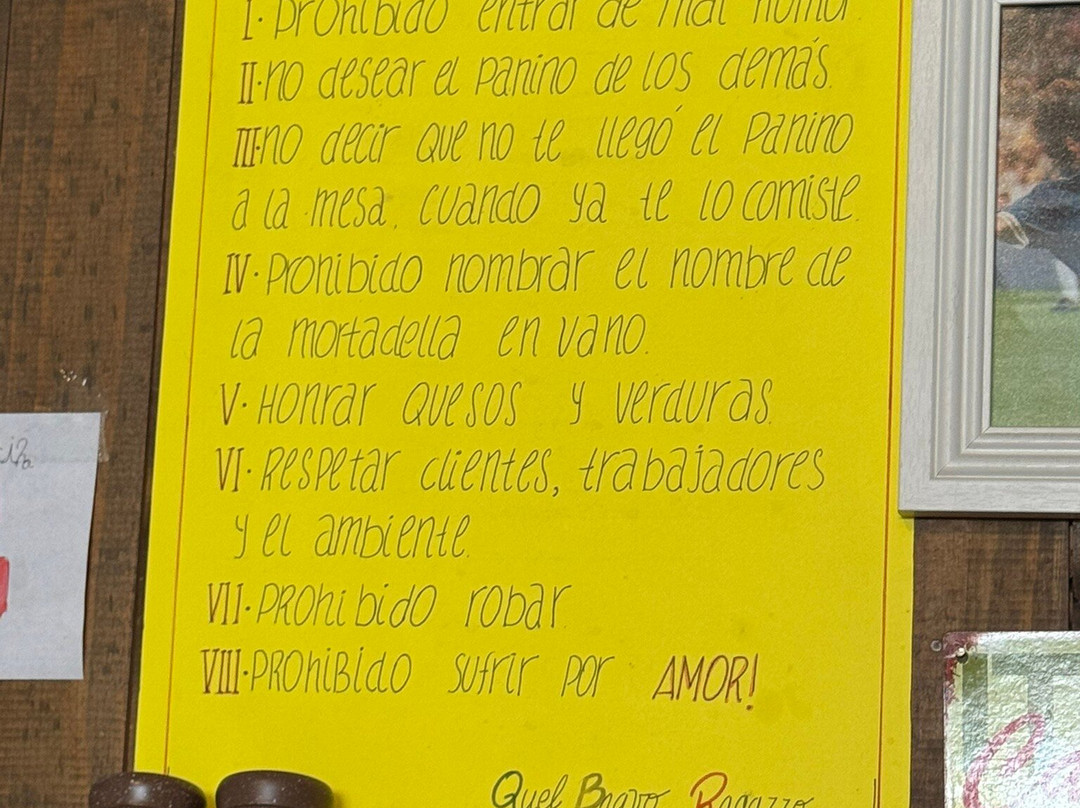 I. Prohibido entrar de mal humor.
II. no desear el panino de los demás.
III. no decir que no te llegó el Panino
a la mesa, cuando ya te lo comiste.
IV. Prohibido nombrar el nombre de
la mortadella en vano.
V. Honrar quesos y verduras.
VI. Respetar clientes, trabajadores
y el ambiente.
VII. PROhibido robar.
VIII. PROhiBido sufrir por AMOR!
Quel Bravo Ragazzo